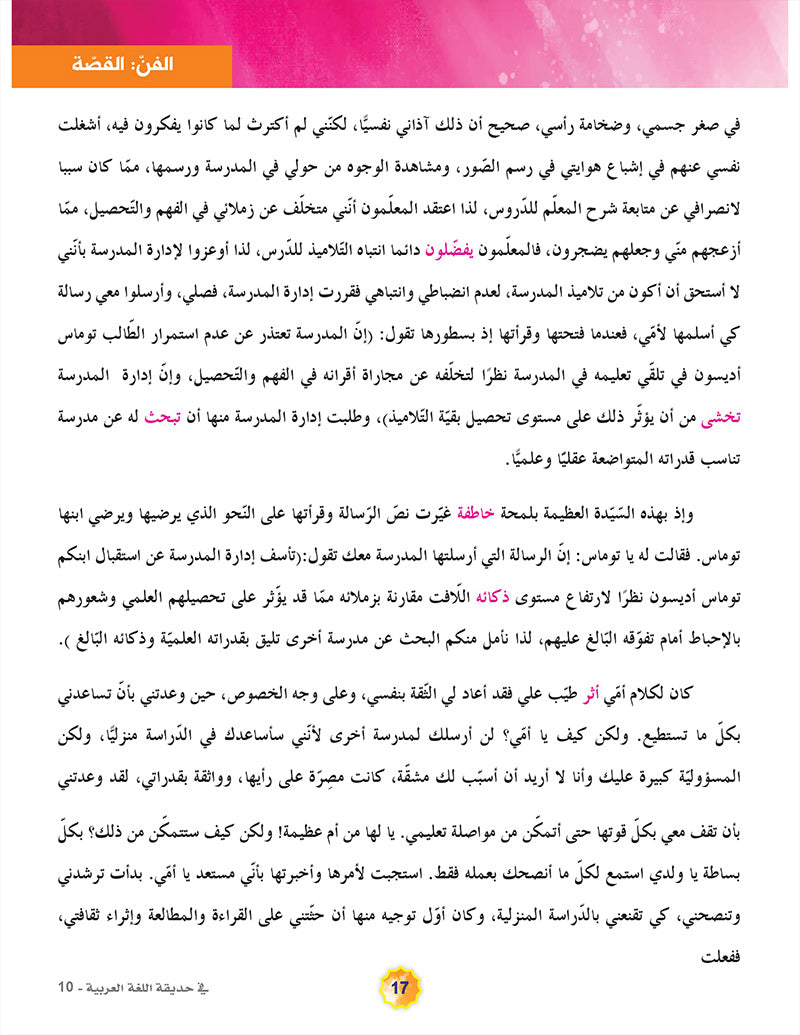 الفنّ: القصّة
في صغر جسمي، وضخامة رأسي، صحيح أن ذلك آذاني نفسيًّا، لكنّني لم أكترث لما كانوا يفكرون فيه، أشغلت
نفسي عنهم في إشباع هوايتي في رسم الصّور، ومشاهدة الوجوه من حولي في المدرسة ورسمها، ممّا كان سببا
لانصرافي عن متابعة شرح المعلّم للدّروس، لذا اعتقد المعلّمون أنّني متخلّف عن زملائي في الفهم والتّحصيل، ممّا
أزعجهم منّي وجعلهم يضجرون، فالمعلّمون يفضّلون دائما انتباه التّلاميذ للدّرس، لذا أوعزوا لإدارة المدرسة بأنّني
لا أستحق أن أكون من تلاميذ المدرسة، لعدم انضباطي وانتباهي فقررت إدارة المدرسة، فصلي، وأرسلوا معي رسالة
كي أسلمها لأمّي، فعندما فتحتها وقرأتها إذ بسطورها تقول: (إنّ المدرسة تعتذر عن عدم استمرار الطّالب توماس
أديسون في تلقّي تعليمه في المدرسة نظرًا لتخلّفه عن مجاراة أقرانه في الفهم والتّحصيل، وإنّ إدارة المدرسة
تخشى من أن يؤثّر ذلك على مستوى تحصيل بقيّة التّلاميذ)، وطلبت إدارة المدرسة منها أن تبحث له عن مدرسة
تناسب قدراته المتواضعة عقليًا وعلميًّا.
وإذ بهذه السّيّدة العظيمة بلمحة خاطفة غيّرت نصّ الرّسالة وقرأتها على النّحو الذي يرضيها ويرضي ابنها
توماس. فقالت له يا توماس: إنّ الرسالة التي أرسلتها المدرسة معك تقول:(تأسف إدارة المدرسة عن استقبال ابنكم
توماس أديسون نظرًا لارتفاع مستوى ذكائه اللّافت مقارنة بزملائه ممّا قد يؤّثر على تحصيلهم العلمي وشعورهم
بالإحباط أمام تفوّقه البّالغ عليهم، لذا نأمل منكم البحث عن مدرسة أخرى تليق بقدراته العلميّة وذكائه البّالغ ).
كان لكلام أمّي أثر طيّب علي فقد أعاد لي الثّقة بنفسي، وعلى وجه الخصوص، حين وعدتني بأنّ تساعدني
بكلّ ما تستطيع. ولكن كيف يا أمّي؟ لن أرسلك لمدرسة أخرى لأنّني سأساعدك في الدّراسة منزليًّا، ولكن
المسؤوليّة كبيرة عليك وأنا لا أريد أن أسبّب لك مشقّة، كانت مصِرّة على رأيها، وواثقة بقدراتي، لقد وعدتني
بأن تقف معي بكلّ قوتها حتى أتمكّن من مواصلة تعليمي. يا لها من أم عظيمة! ولكن كيف ستتمكّن من ذلك؟ بكلّ
بساطة يا ولدي استمع لكلّ ما أنصحك بعمله فقط. استجبت لأمرها وأخبرتها بأنّي مستعد يا أمّي. بدأت ترشدني
وتنصحني، كي تقنعني بالدّراسة المنزلية، وكان أوّل توجيه منها أن حثّتني على القراءة والمطالعة وإثراء ثقافتي،
ففعلت
17
في حديقة اللغة العربية - 10